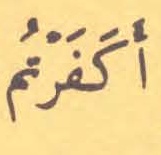 أَكَفَرْتُم